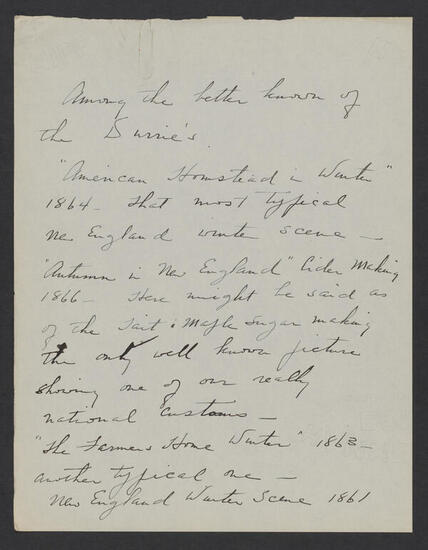 Among the better known of
the Durrie's
"American Homstead in Winter"
1864 - that most typical
New England winter scene -
"Autumn in New England" Cider Making
1866 - Here might be said as
of the Tait : Maple Sugar making
the only well known picture
showing one of our really
national customs -
"The Farmers Home Winter" 1863 -
another typical one -
New England Winter Scene 1861